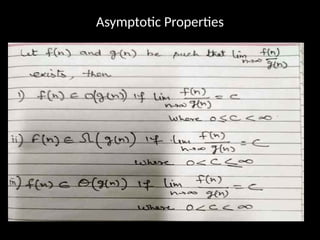 Asymptotic Properties
Let f(n) and g(n) be such that lim n→∞ f(n)/g(n)
exists, then
i) f(n) ∈ O(g(n)) if lim n→∞ f(n)/g(n) = c
where 0≤c<∞
ii) f(n) ∈ Ω(g(n)) if lim n→∞ f(n)/g(n) = c
where 0<c≤∞
iii) f(n) ∈ Θ(g(n)) if lim n→∞ f(n)/g(n) = c
where 0<c<∞